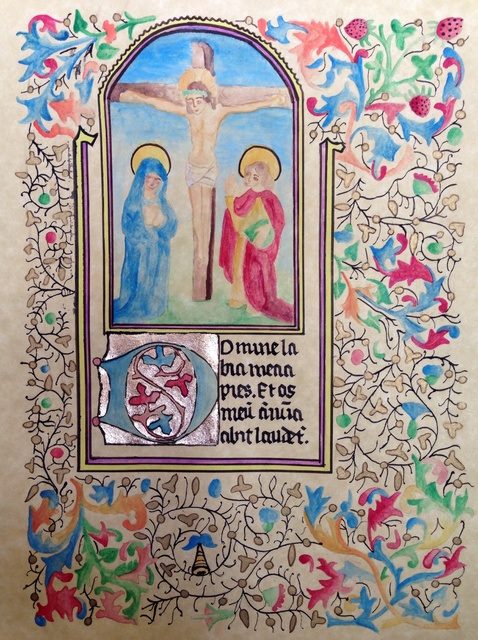 DOmine la
bia mea a
pies. Et os
meū an̄ūcia
abit laudet̄.